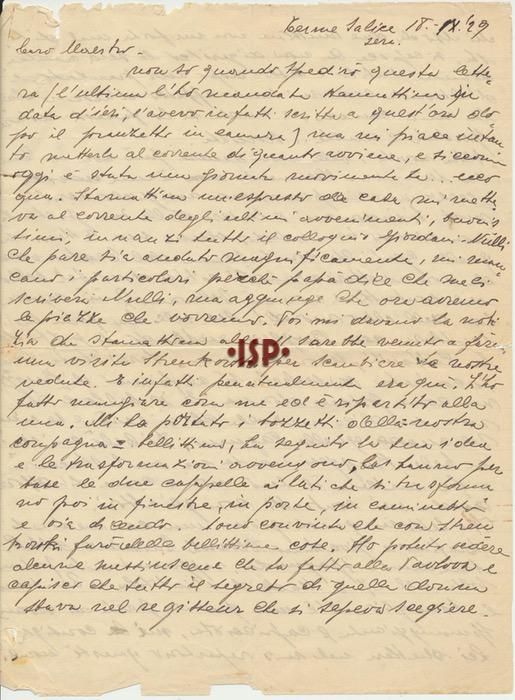 Terme Salice 18-IX.'29
sera.
Caro Maestro.
non so quando spedirò questa lette-
ra (l'ultima l'ho mandata stamattina in
data d'ieri, l'avevo infatti scritta a quest'ora do-
po il pranzetto in camera) ma mi piace intan-
to metterla al corrente di quanto avviene, e siccome
oggi è stata una giornata movimentata... ecco
qua. Stamattina un espresso da casa mi mette-
va al corrente degli ultimi avvenimenti, buonis-
simi, innanzi tutto il colloquio Giordani-Nulli
che pare sia andato magnificamente, mi man-
cano i particolari perchè papà dice che me li
scriverà Nulli, ma aggiunge che ora avremo
le piazze che vorremo. Poi mi davano la noti-
zia che stamattina sarebbe venuto a farmi
una visita per scambiare le nostre
vedute. E infatti puntualmente era qui. L'ho
fatto mangiare con me ed è ripartito alla
una. Mi ha portato i bozzetti della nostra
compagna - bellissimo, ha seguito la sua idea
e le trasformazioni avvengono, hanno per
base le due cappelle ai lati che si trasforma
no poi in finestre, in porte, in caminetti
e via dicendo. Sono convinta che con Stren
kowski farò delle bellissime cose. Ho potuto vedere
alcune messinscene che ha fatto alla Pavlova e
capisco che tutto il segreto di quella donna
stava nel regisseur che si sapeva scegliere.
ISP